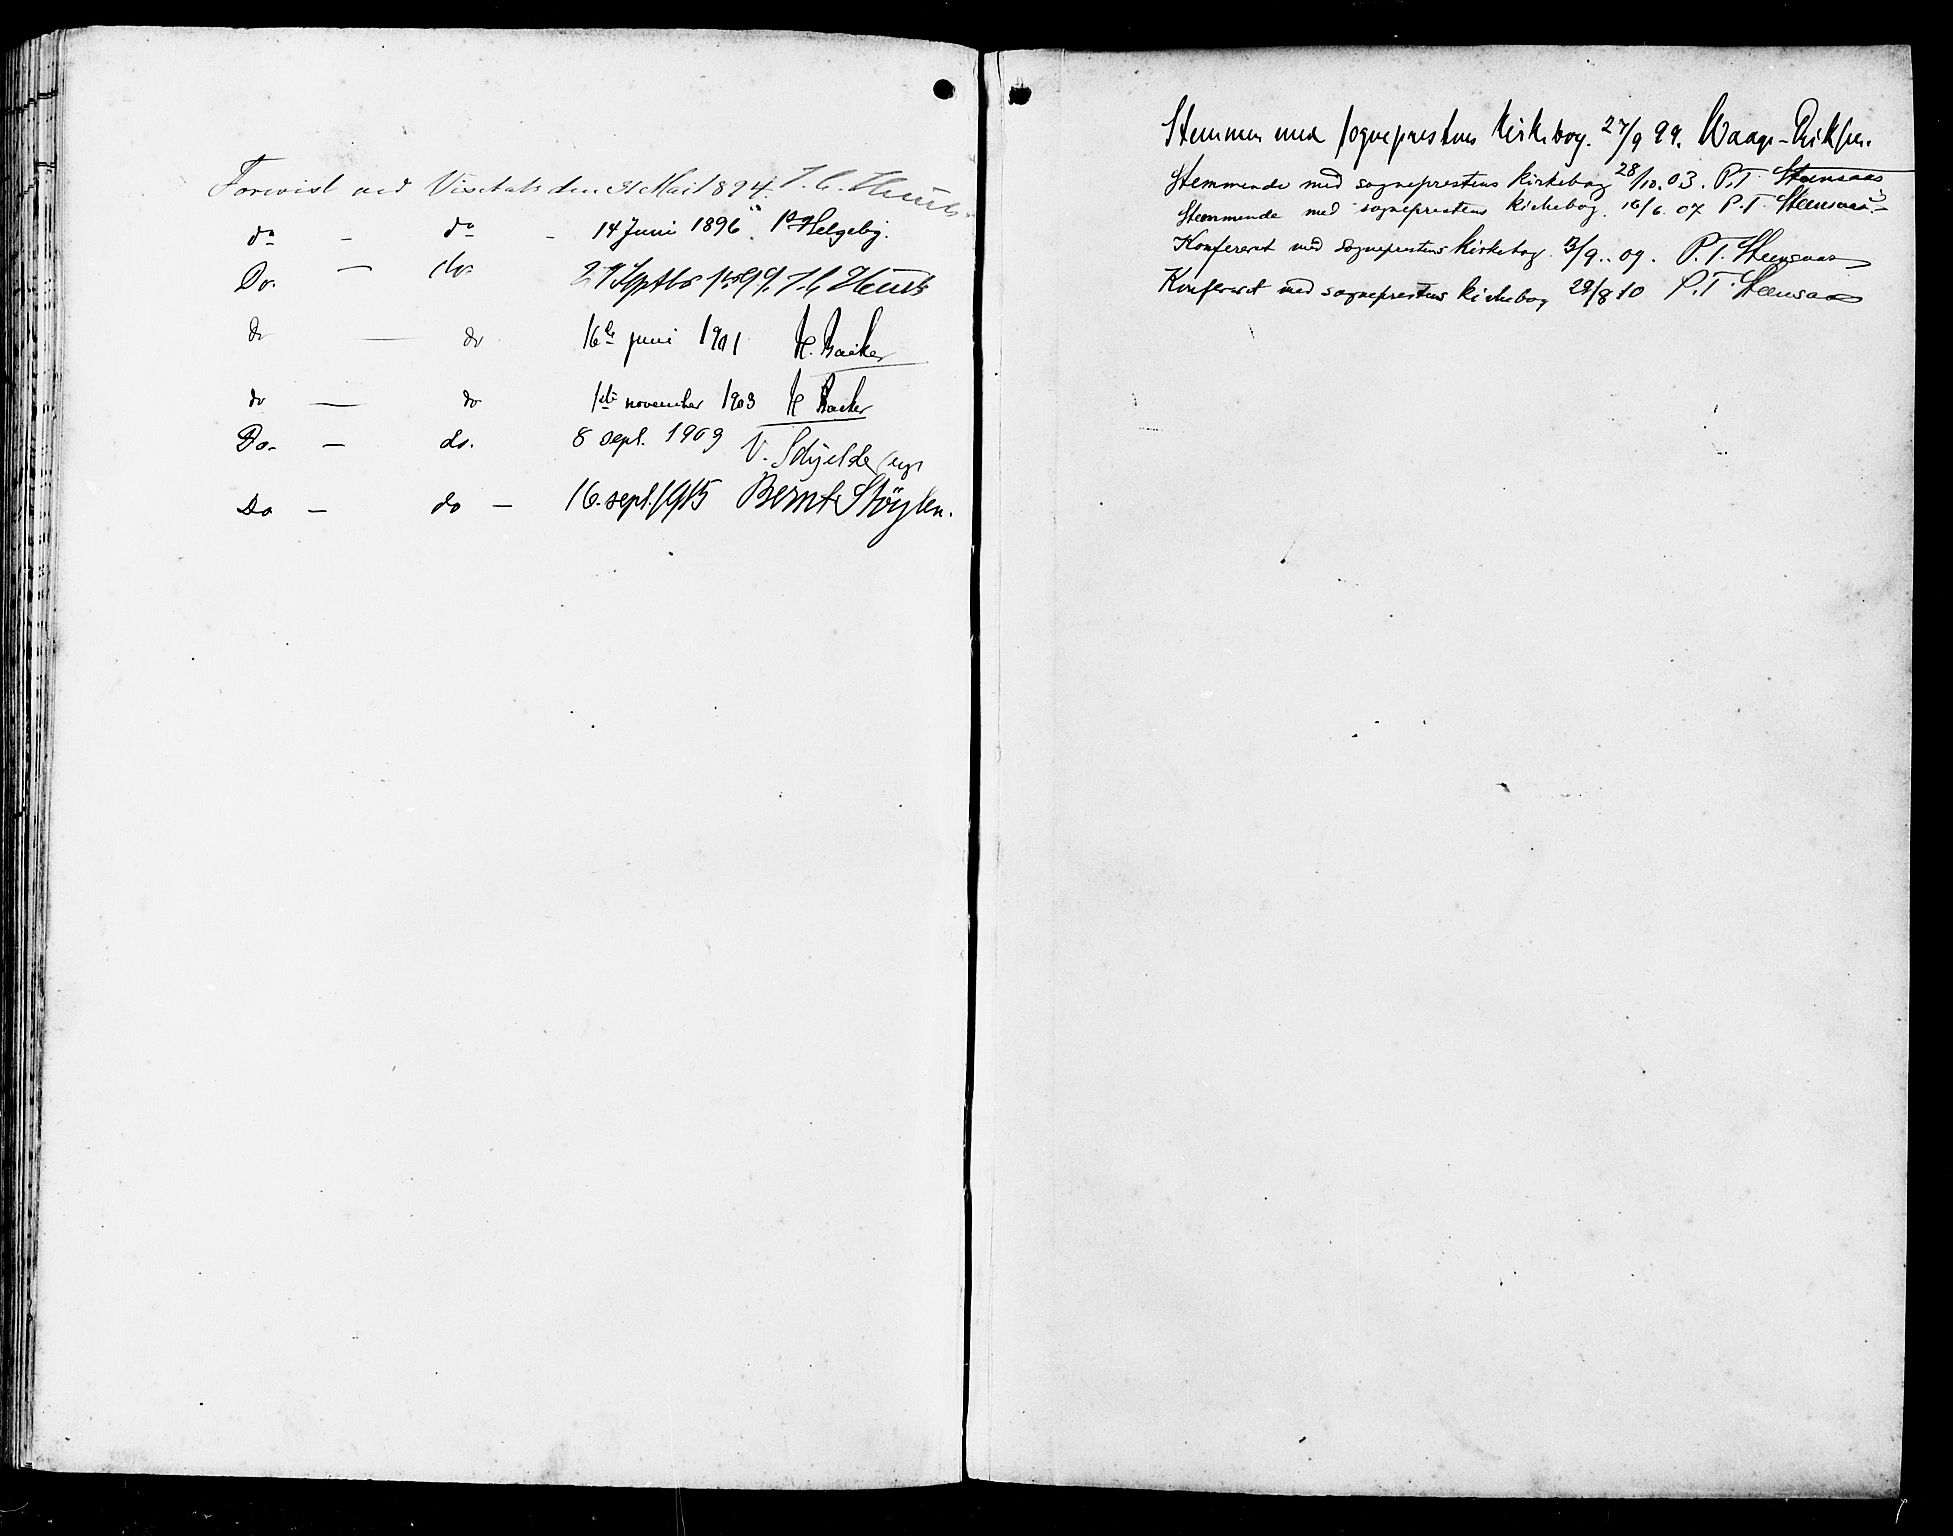 Forevist ved Visitats den 31 Mai 1894. J. C. Heuch
do - do - 14 Juni 1896. Helgeby.
Do. - do. 27 Septbr 1899. J. C. Heuch
do - do 16de juni 1901 H. Barker
do - do 1ste november 1903 H Barker
Do. - do. 8 sept. 1909 V. Schjelde
Do - do - 16. sept. 1915 Bernt Stöylen.
Stemmer med sogneprestens kirkebog. 27/9 99. Waage-
Stemmende med sogneprestens kirkebog 28/10. 03. P. T. Steensaas
Stemmende med sogneprestens kirkebog. 16/6. 07 P. T. Steensaas.
Konfereret med sogneprestens kirkebog 13/9. 09. P. T. Steensaas
Konfereret med sogneprestens kirkebog 29/8 10 P. T. Steensaas